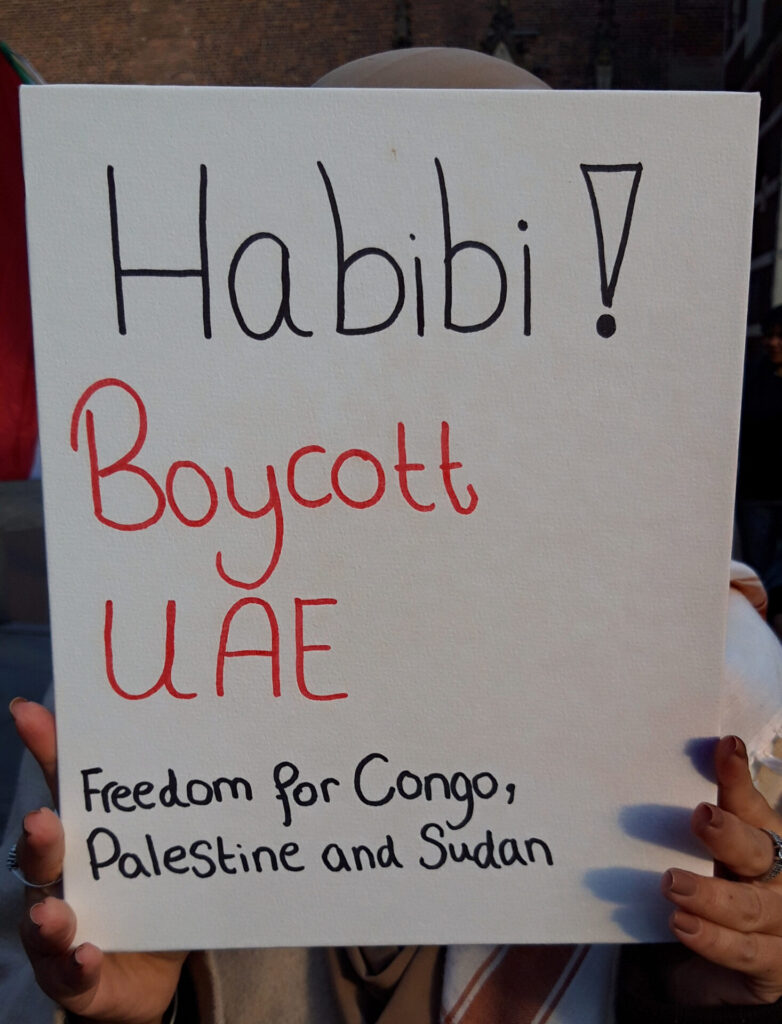 Habibi!
Boycott
UAE
Freedom for Congo,
Palestine and Sudan